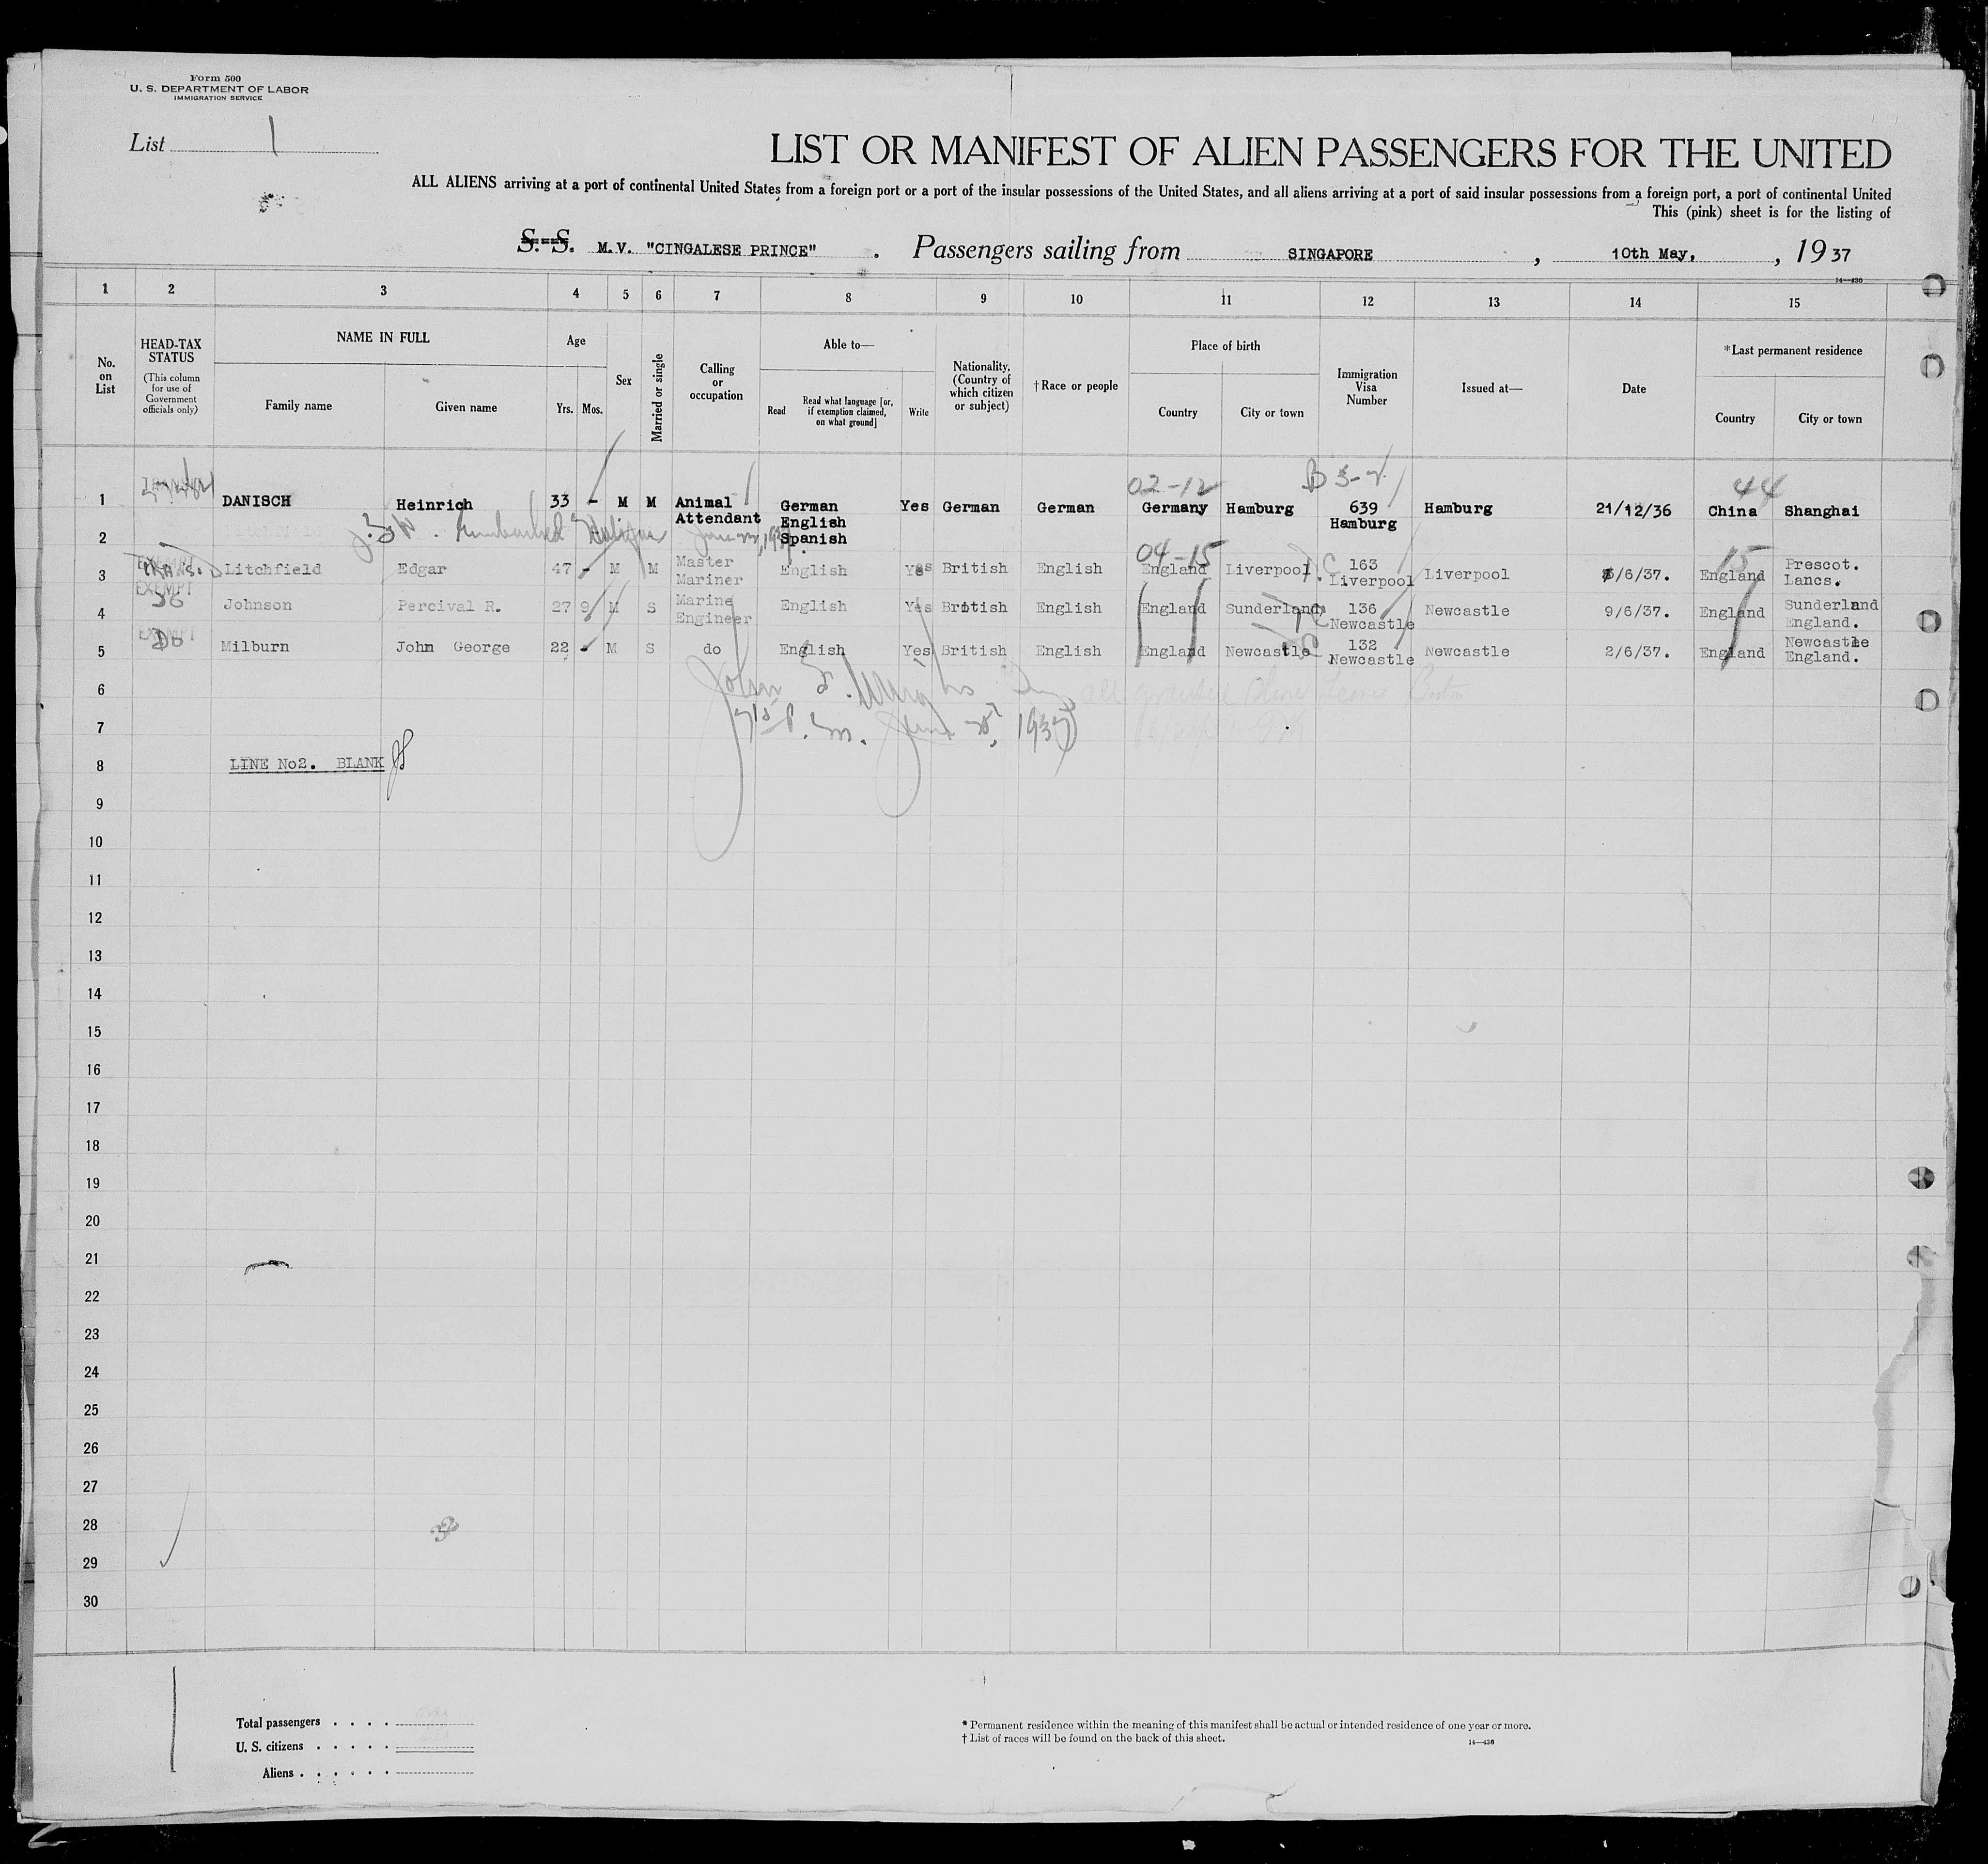 Form 500
U. S. DEPARTMENT OF LABOR
IMMIGRATION SERVICE
List 1
LIST OR MANIFEST OF ALIEN PASSENGERS FOR THE UNITED
ALL ALIENS arriving at a port of continental United States from a foreign port or a port of the insular possessions of the United States, and all aliens arriving at a port of said insular possessions from a foreign port, a port of continental United
This (pink) sheet is for the listing of
S. S. M.V. "CINGALESE PRINCE" . Passengers sailing from SINGAPORE , 10th May, , 1937
14—430
1 2 3 4 5 6 7 8 9 10 11 12 13 14 15
No. on List
HEAD-TAX STATUS
(This column for use of Government officials only)
NAME IN FULL
Family name Given name
Age
Yrs. Mos.
Sex
Married or single
Calling or occupation
Able to—
Read
Read what language [or, if exemption claimed, on what ground]
Write
Nationality. (Country of which citizen or subject)
†Race or people
Place of birth
Country City or town
Immigration Visa Number
Issued at—
Date
*Last permanent residence
Country City or town
02-12 B 3- 44
1 DANISCH Heinrich 33 - M M Animal Attendant German English Spanish Yes German German Germany Hamburg 639 Hamburg Hamburg 21/12/36 China Shanghai
2
04-15 15
3 Litchfield Edgar 47 - M M Master Mariner English Yes British English England Liverpool. 163 Liverpool Liverpool /6/37. England Prescot. Lancs.
EXEMPT
4 Johnson Percival R. 27 9 M S Marine Engineer English Yes British English England Sunderland 136 Newcastle Newcastle 9/6/37. England Sunderland England.
5 Do Milburn John George 22 - M S do English Yes British English England Newcastle 132 Newcastle Newcastle 2/6/37. England Newcastle England.
6
7 P.m. June 1937
8 LINE No2. BLANK
9
10
11
12
13
14
15
16
17
18
19
20
21
22
23
24
25
26
27
28
29
30
Total passengers . . . .
U. S. citizens . . . . .
Aliens . . . . . .
* Permanent residence within the meaning of this manifest shall be actual or intended residence of one year or more.
† List of races will be found on the back of this sheet.
14—430